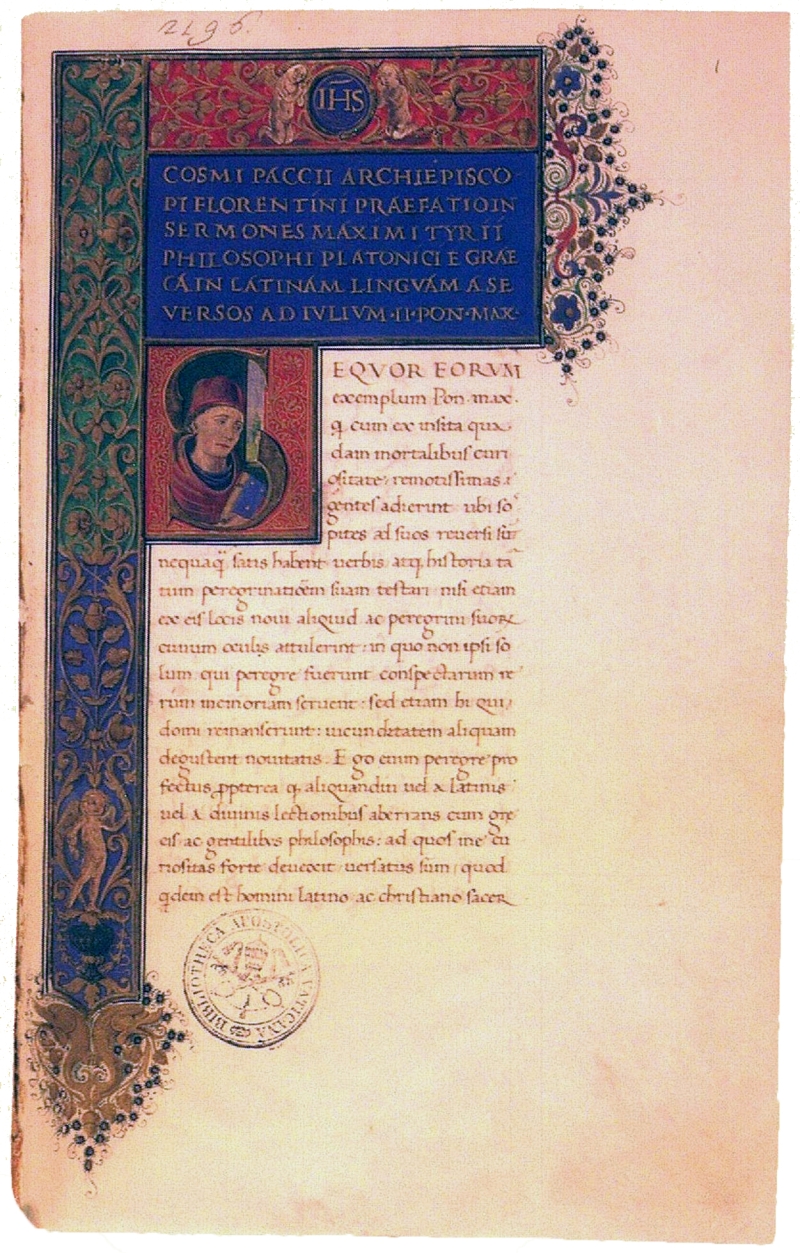 2196.
1
IHS
COSMI PACCII ARCHIEPISCO
PI FLORENTINI PRAEFATIO IN
SERMONES MAXIMI TYRII
PHILOSOPHI PLATONICI E GRAE
CA IN LATINAM LINGVAM A SE
VERSOS AD IVLIVM · II · PON · MAX ·
SEQVOR EORVM
exemplum Pon. max.
cum ex insita qua
dam mortalibus curi
ositate remotissimas
gentes adierint ubi so
pites ad suos reversi sūt
nequaq̃ satis habent verbis atq historia tā
tum peregrinatiōem suam testari nisi etiam
ex eis locis novi aliquid ac peregrini suorꝝ
civium oculis attulerint: in quo non ipsi so
lum qui peregre fuerunt conspectarum re
rum memoriam servent: sed etiam hi qui
domi remanserunt: iucunditatem aliquam
degustent novitatis. Ego enim peregre pro
fectus ꝓpterea aliquandiu vel a latinis
vel a divinis lectionibus aberrans cum gre
cis ac gentilibus philosophis: ad quos me cu
riositas forte devexit versatus sum quod
qdem est homini latino ac christiano sacer
BIBLIOTHECA APOSTOLICA VATICANA